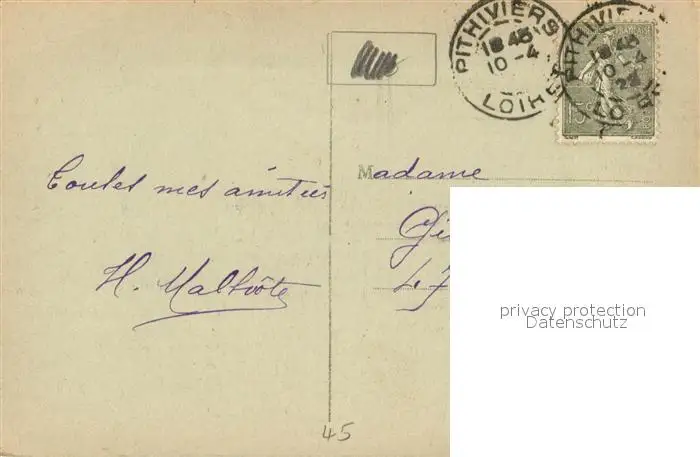 PITHIVIERS
18 45
10 - 4
LOIRET
PITHIVIERS
18 45
10 - 4
24
LOIRET
15c
Toutes mes amitiés
H.
Madame
47
privacy protection
Datenschutz
45